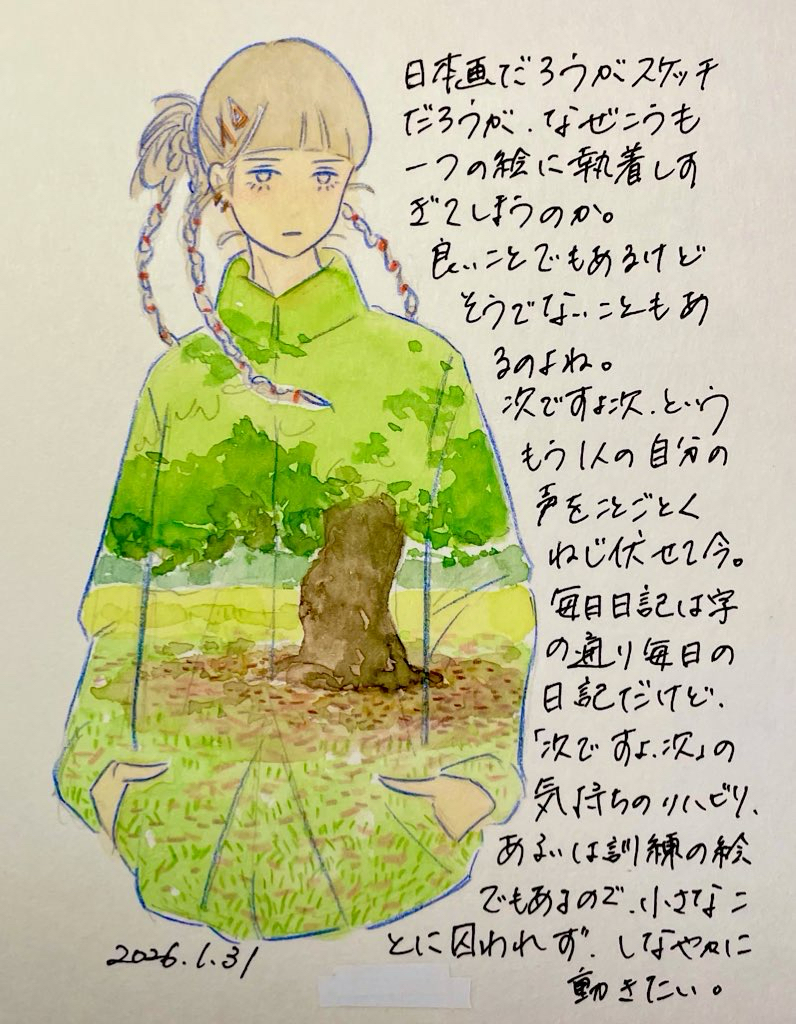 日本画だろうがスケッチ
だろうが、なぜこうも
一つの絵に執着しす
ぎてしまうのか。
良いことでもあるけど
そうでないこともあ
るのよね。
次ですよ次、という
もう1人の自分の
声をことごとく
ねじ伏せて今。
毎日日記は字
の通り毎日の
日記だけど、
「次ですよ、次」の
気持ちのリハビリ、
あるいは訓練の絵
でもあるので、小さなこ
とに囚われず、しなやかに
動きたい。
2026.1.31